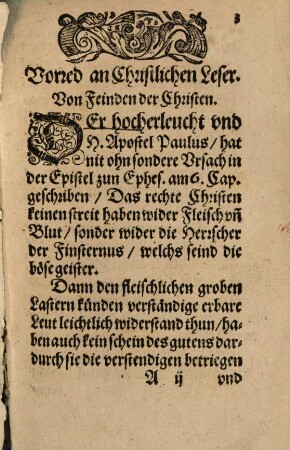 3
Vorred an Christlichen Leser.
Von Feinden der Christen.
DEr hocherleucht vnd
H. Apostel Paulus / hat
nit ohn sondere Vrsach in
der Epistel zun Ephes. am 6. Cap.
geschriben / Das rechte Christen
keinen streit haben wider Fleisch vñ
Blut / sonder wider die Herrscher
der Finsternus / welchs seind die
böse geister.
Dann den fleischlichen groben
Lastern künden verständige erbare
Leut leichtlich widerstand thun / ha-
ben auch kein schein des gutens dar-
durch sie die verstendigen betriegen
A ij vnd